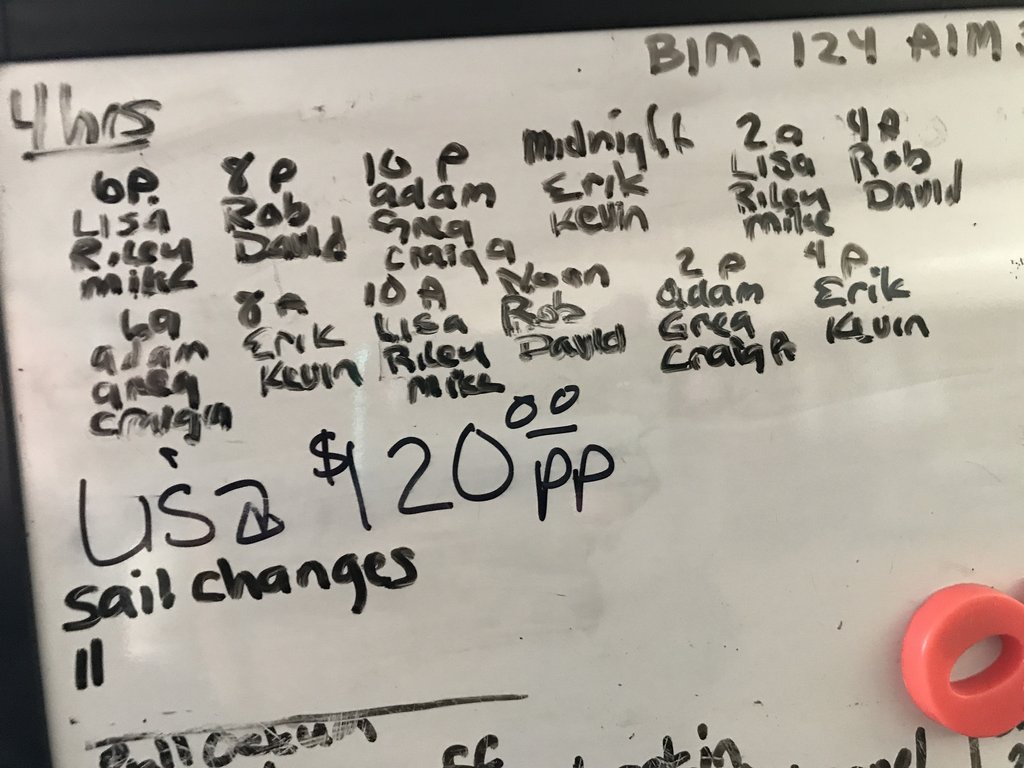 BIM 124 AIM
4 hrs
6P. 8P 10 P midnight 2a 4A
Lisa Rob adam Erik Lisa Rob
Riley David Greg Kevin Riley David
mike craig a mike
6a 8A 10 A Noon 2 P 4 P
adam Erik Lisa Rob adam Erik
greg Kevin Riley David Greg Kevin
craig mike craig
$120.00 pp
sail changes
II